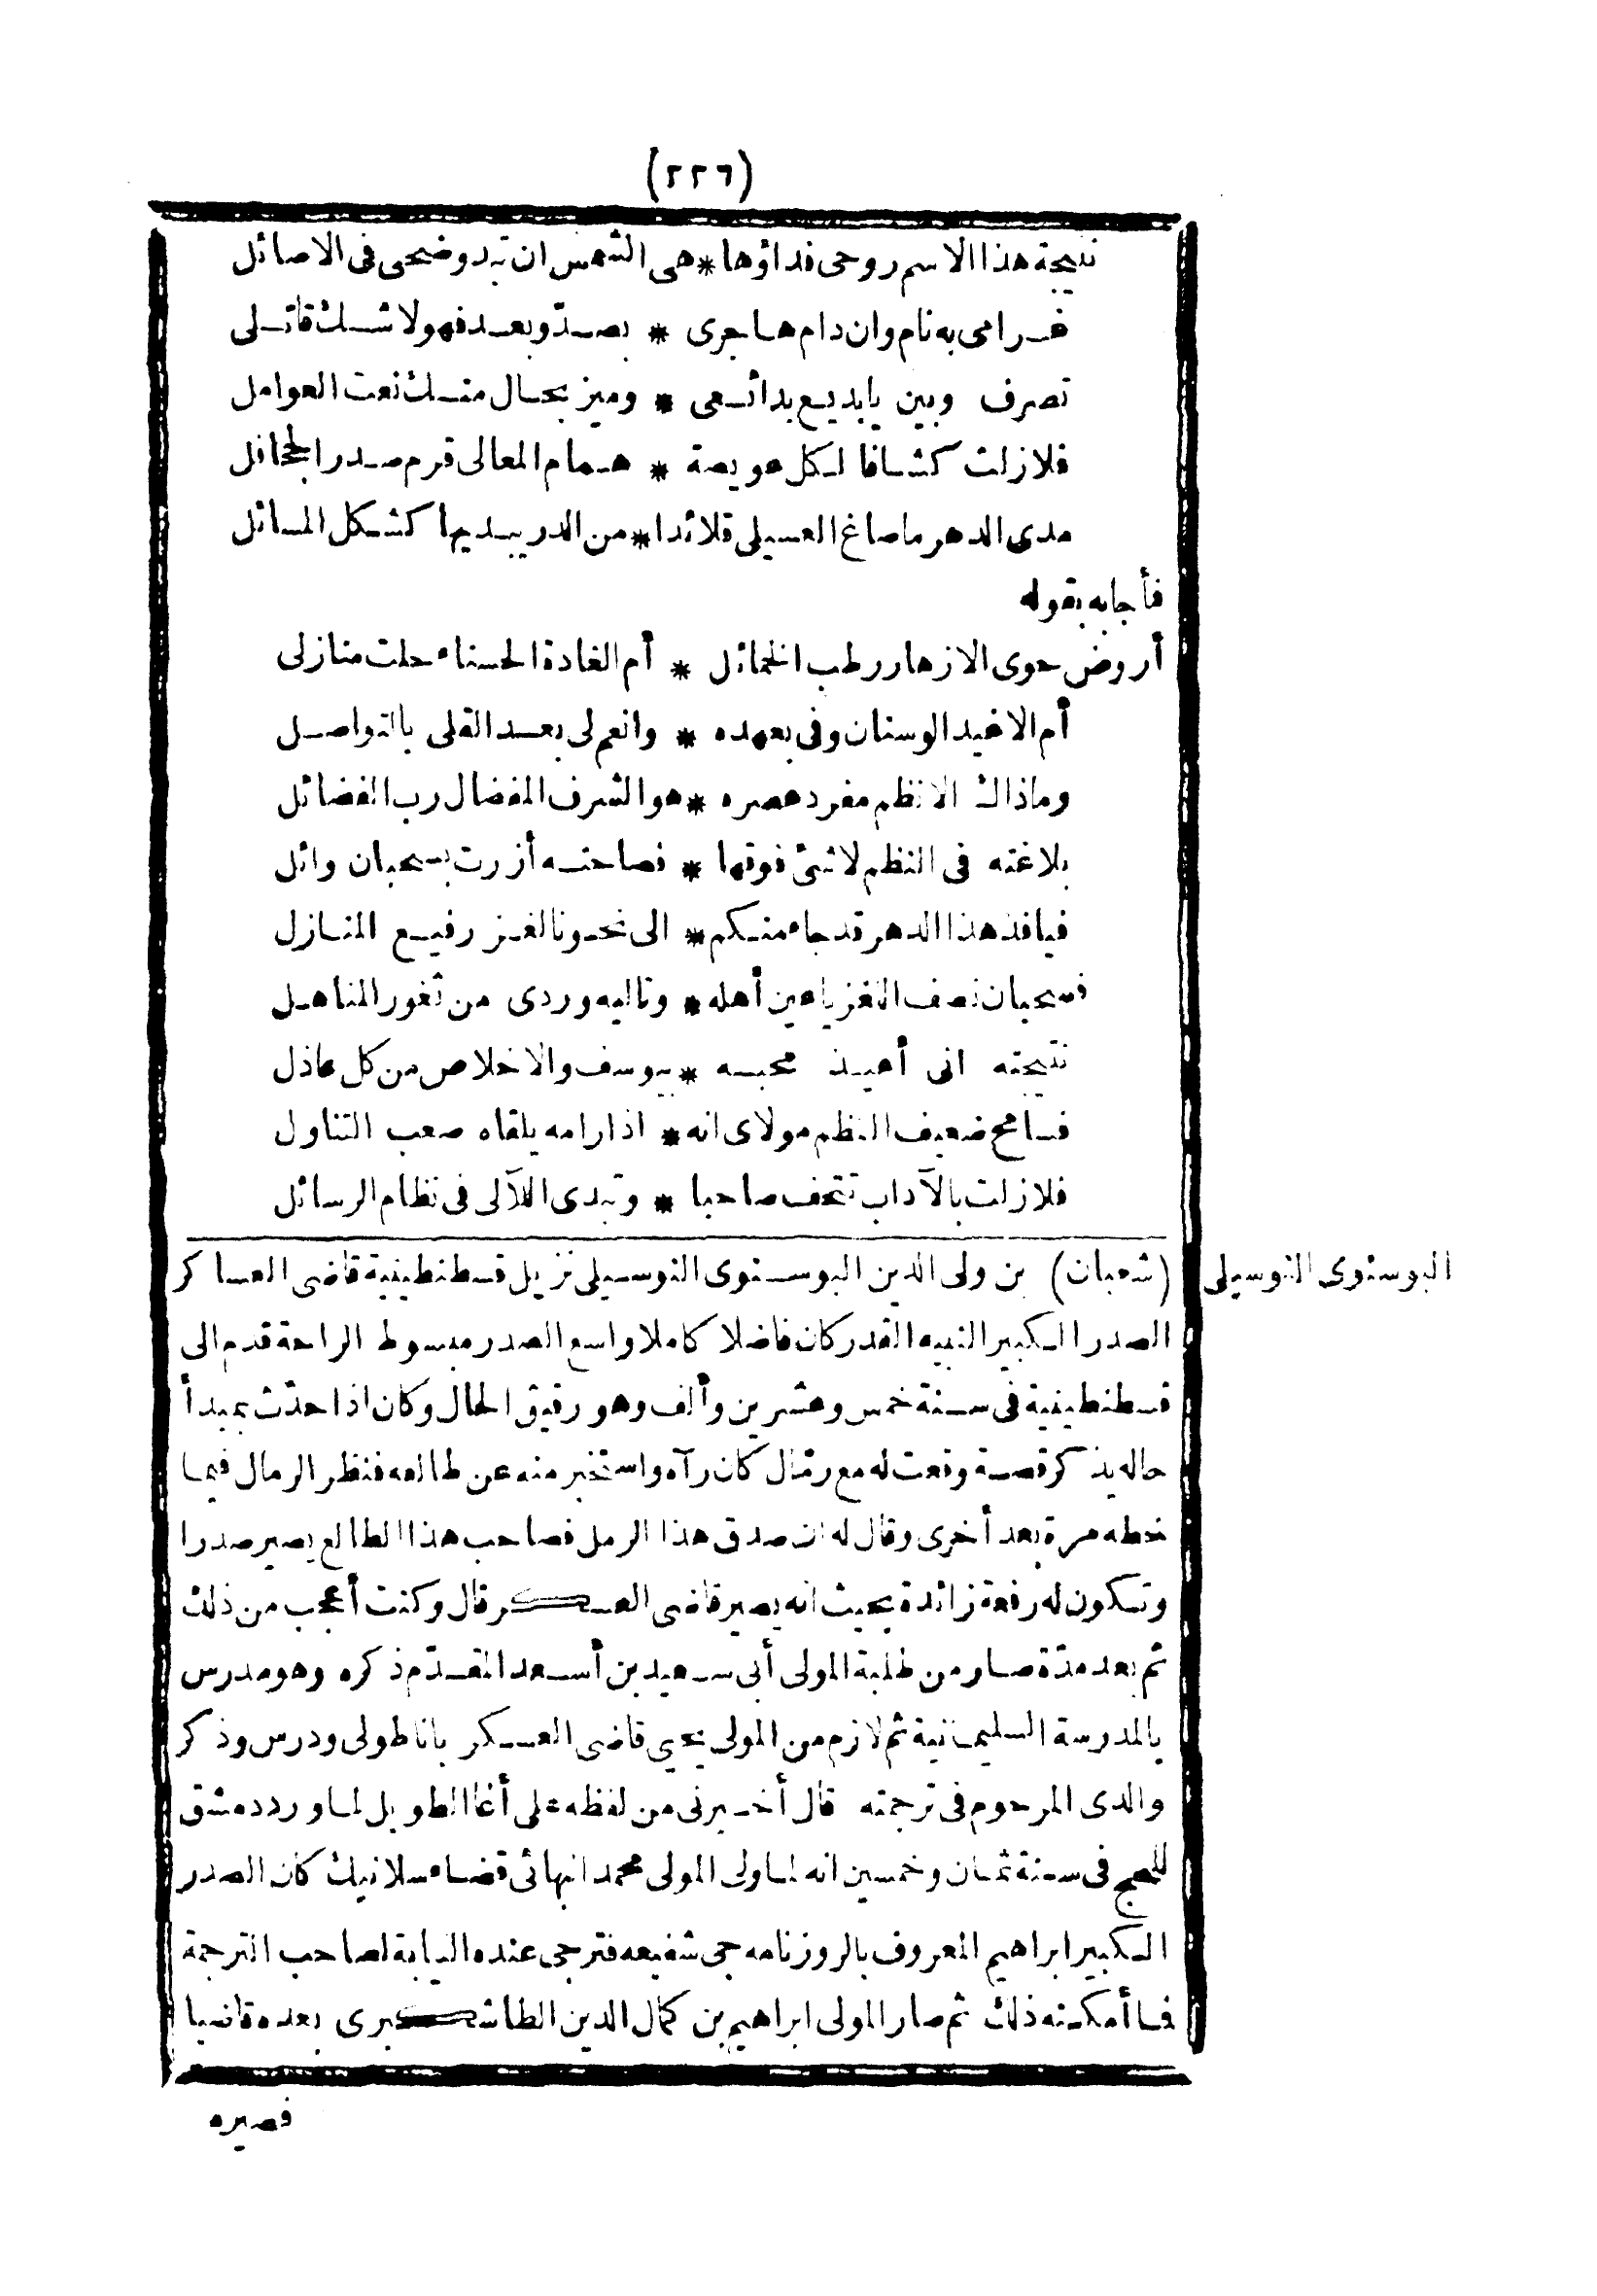 (٢٢٦)
نتيجة هذا الاسم روحى فداؤها * هى الشمس ان تبدو ضحى فى الاصائل
غرامى به نام وان دام هاجرى * بصدّ وبعد فهو لا شك قاتلى
تصرف وبين يا بديع بدائعى * وميز بحال منك نعت العوامل
فلا زلت كشافا لكل عويصة * همام المعالى قرم صدر الجحافل
مدى الدهر ما صاغ العسيلى قلائدا * من الدر يبديها كشكل المسائل
فأجابه بقوله
أروض حوى الازهار رطب الخمائل * أم الغادة الحسناء حلت منازلى
أم الاغيد الوسنان وفى بعهده * وانعم لى بعد القلى بالتواصل
وماذاك الا نظم مفرد عصره * هو الشرف المفضال رب الفضائل
بلاغته فى النظم لا شئ فوقها * فصاحته أزرت بسحبان وائل
فيا فذ هذا الدهر قد جاء منكم * الى نحونا لغز رفيع المنازل
فسحبان نصف اللغز يا عين أهله * وتاليه وردى من ثغور المناهل
نتيجته انى أعيذ محبه * بيوسف والاخلاص من كل عاذل
فسامح ضعيف النظم مولاى انه * اذا رامه يلقاه صعب التناول
فلا زلت بالآداب تتحف صاحبا * وتبدى اللآلى فى نظام الرسائل
البوسنوى النوسيلى
(شعبان) بن ولى الدين البوسنوى النوسيلى نزيل قسطنطينية قاضى العساكر
الصدر الكبير النبيه القدر كان فاضلا كاملا واسع الصدر مبسوط الراحة قدم الى
قسطنطينية فى سنة خمس وعشرين وألف وهو رقيق الحال وكان اذا حدّث بمبدأ
حاله يذكر قصة وقعت له مع رمّال كان رآه واستخبر منه عن طالعه فنظر الرمال فيما
خطه مرة بعد أخرى وقال له ان صدق هذا الرمل فصاحب هذا الطالع يصير صدرا
وتكون له رفعة زائدة بحيث انه يصير قاضى العسكر قال وكنت أعجب من ذلك
ثم بعد مدّة صار من طلبة المولى أبى سعيد بن أسعد المقدّم ذكره وهو مدرس
بالمدرسة السليمانية ثم لازم من المولى يحيى قاضى العسكر باناطولى ودرس وذكر
والدى المرحوم فى ترجمته قال أخبرنى من لفظه على أغا الطويل لما ورد دمشق
للحج فى سنة ثمان وخمسين انه لما ولى المولى محمد البهائى قضاء سلانيك كان الصدر
الكبير ابراهيم المعروف بالروزنامه جى شفيعه فترجى عنده النيابة لصاحب الترجمة
فما أمكنه ذلك ثم صار المولى ابراهيم بن كمال الدين الطاشكبرى بعده قاضيا
فصيره